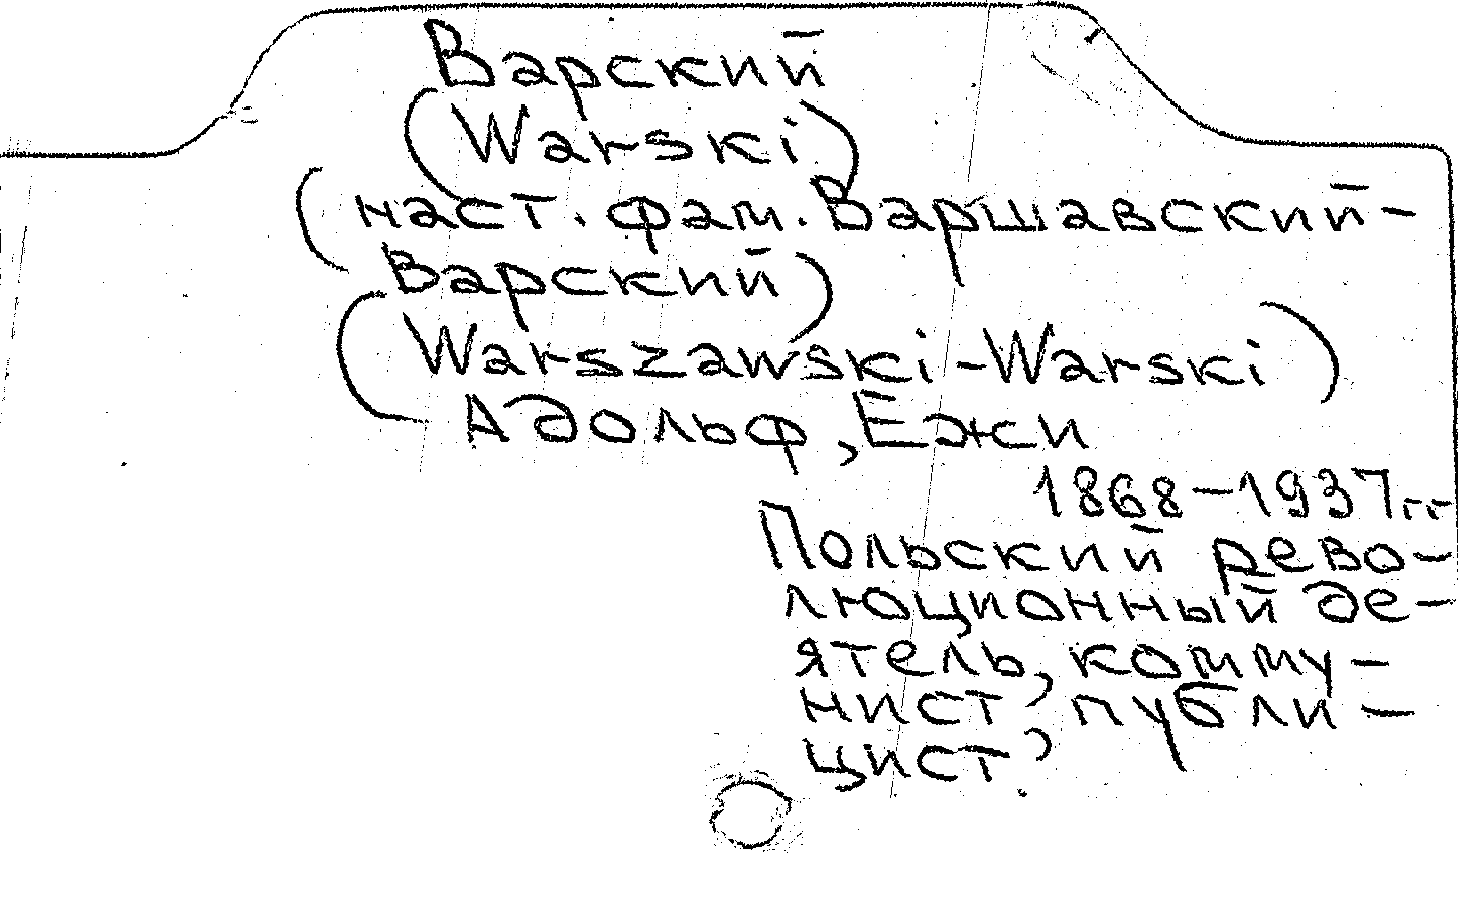 Варский
(Warski)
(наст. фам. Варшавский-
Варский)
(Warszawski-Warski)
Адольф, Ежи
1868-1937гг
Польский рево-
люционный де-
ятель, комму-
нист, публи-
цист.